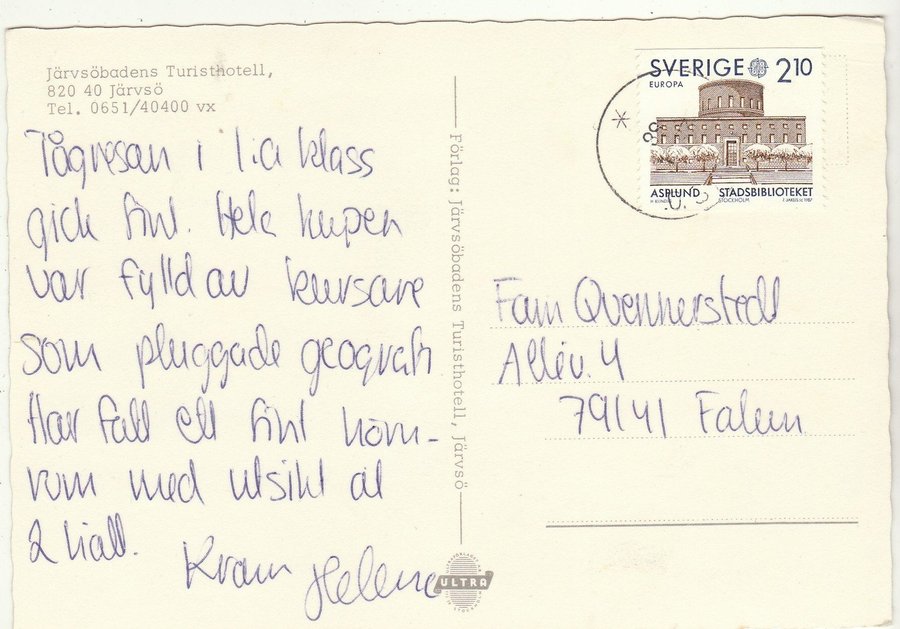 Järvsöbadens Turisthotell,
820 40 Järvsö
Tel. 0651/40400 vx
Tågresan i 1:a klass
gick fint. Hela kupen
var fylld av kursare
som pluggade geografi
Har fått ett fint hörn-
rum med utsikt åt
2 håll.
Kram Helena
Förlag: Järvsöbadens Turisthotell, Järvsö
ULTRA
SVERIGE 210
EUROPA
ASPLUND STADSBIBLIOTEKET
STOCKHOLM
Fam Qvennerstedt
Allév. 4
79141 Falun